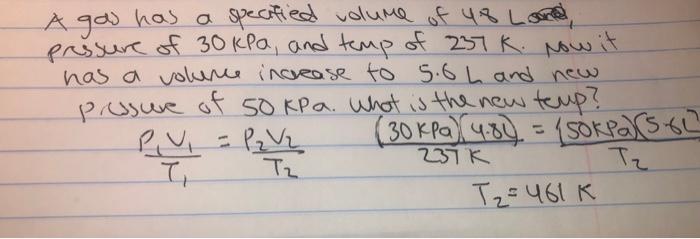 A gas has a specified volume of 4.8 L
pressure of 30 kPa, and temp of 237 K. Now it
has a volume increase to 5.6 L and new
pressure of 50 kPa. What is the new temp?
P₁V₁/T₁ = P₂V₂/T₂ (30 kPa)(4.8L)/237 K = (50kPa)(5.6L)/T₂
T₂ = 461 K